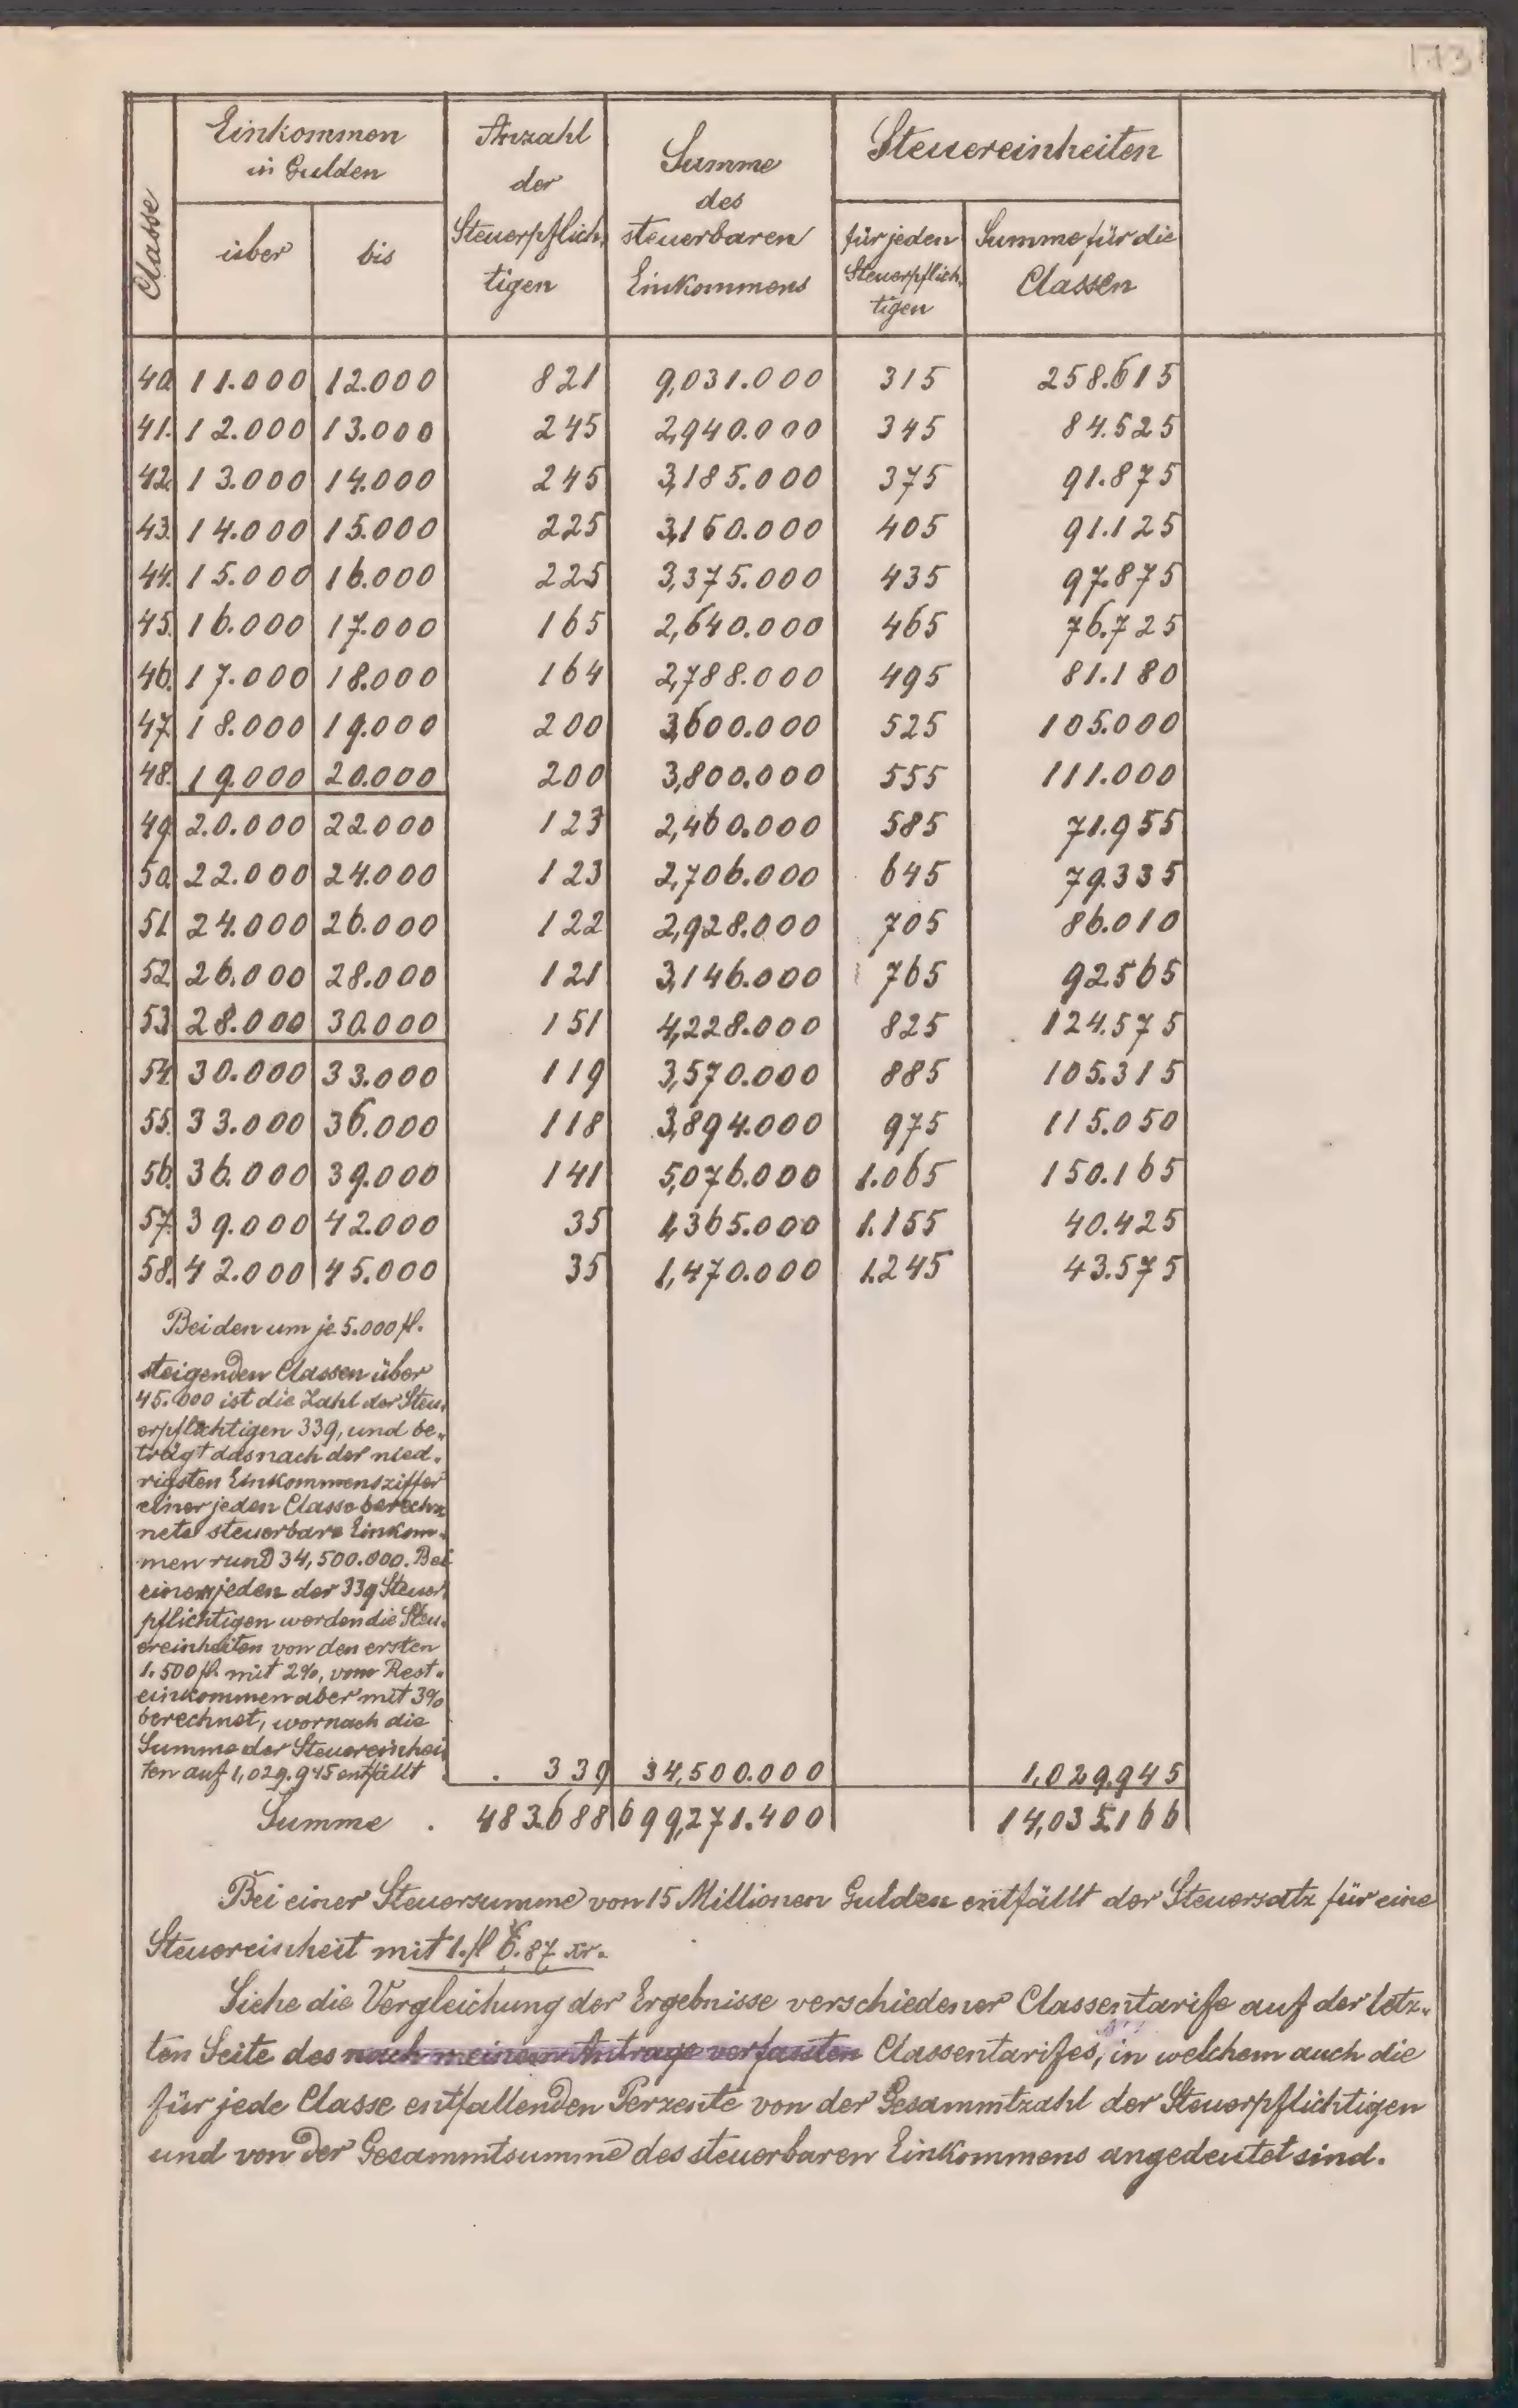 113
Classe
Einkommen
in Gulden
über bis
Anzahl
der
Steuerpflich-
tigen
Summe
des
steuerbaren
Einkommens
Steuereinheiten
für jeden
Steuerpflich-
tigen
Summe für die
Classen
40. 11.000 12.000 821 9,031.000 315 258.615
41. 12.000 13.000 245 2,940.000 345 84.525
42. 13.000 14.000 245 3,185.000 375 91.875
43. 14.000 15.000 225 3,150.000 405 91.125
44. 15.000 16.000 225 3,375.000 435 97.875
45. 16.000 17.000 165 2,640.000 465 76.725
46. 17.000 18.000 164 2,788.000 495 81.180
47. 18.000 19.000 200 3,600.000 525 105.000
48. 19.000 20.000 200 3,800.000 555 111.000
49. 20.000 22.000 123 2,460.000 585 71.955
50. 22.000 24.000 123 2,706.000 645 79.335
51. 24.000 26.000 122 2,928.000 705 86.010
52. 26.000 28.000 121 3,146.000 765 92.565
53. 28.000 30.000 151 4,228.000 825 124.575
54. 30.000 33.000 119 3,570.000 885 105.315
55. 33.000 36.000 118 3,894.000 975 115.050
56. 36.000 39.000 141 5,076.000 1.065 150.165
57. 39.000 42.000 35 1,365.000 1.155 40.425
58. 42.000 45.000 35 1,470.000 1.245 43.575
Bei den um je 5.000 fl.
steigenden Classen über
45.000 ist die Zahl der Steu-
erpflichtigen 339, und be-
trägt das nach der nied-
rigsten Einkommensziffer
einer jeden Classe berech-
nete steuerbare Einkom-
men rund 34,500.000. Bei
einem jeden der 339 Steuer
pflichtigen werden die Steu-
ereinheiten von den ersten
1.500 fl. mit 2%, vom Rest-
einkommen aber mit 3%
berechnet, wornach die
Summe der Steuereinhei
ten auf 1,029.945 entfällt . . 339 34,500.000 1,029.945
Summe . 483.688 699,271.400 14,035.166
Bei einer Steuersumme von 15 Millionen Gulden entfällt der Steuersatz für eine
Steuereinheit mit 1. fl 6.87 xr.
Siehe die Vergleichung der Ergebnisse verschiedener Classentarife auf der letz-
ten Seite des nach meinem Antrage verfassten Classentarifes, in welchem auch die
für jede Classe entfallenden Perzente von der Gesammtzahl der Steuerpflichtigen
und von der Gesammtsumme des steuerbaren Einkommens angedeutet sind.